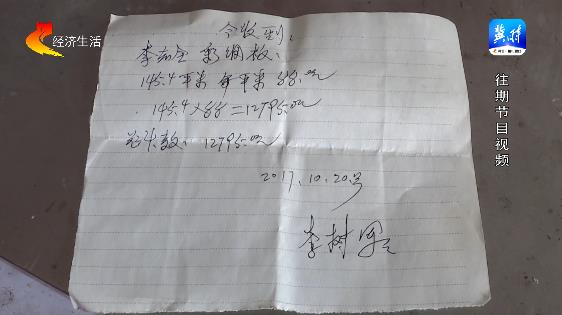 经济生活
冀时
往期节目视频
今收到:
李 全 彩钢板:
145.4平米 每平米 88.元
145.4×88=12795.元
总计款: 12795.元
2017.10.20号
李树军